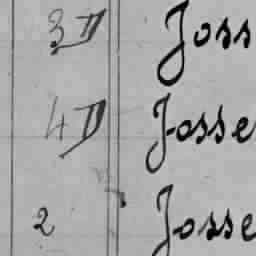 3 D Joss
4 D Josse
2 Josse